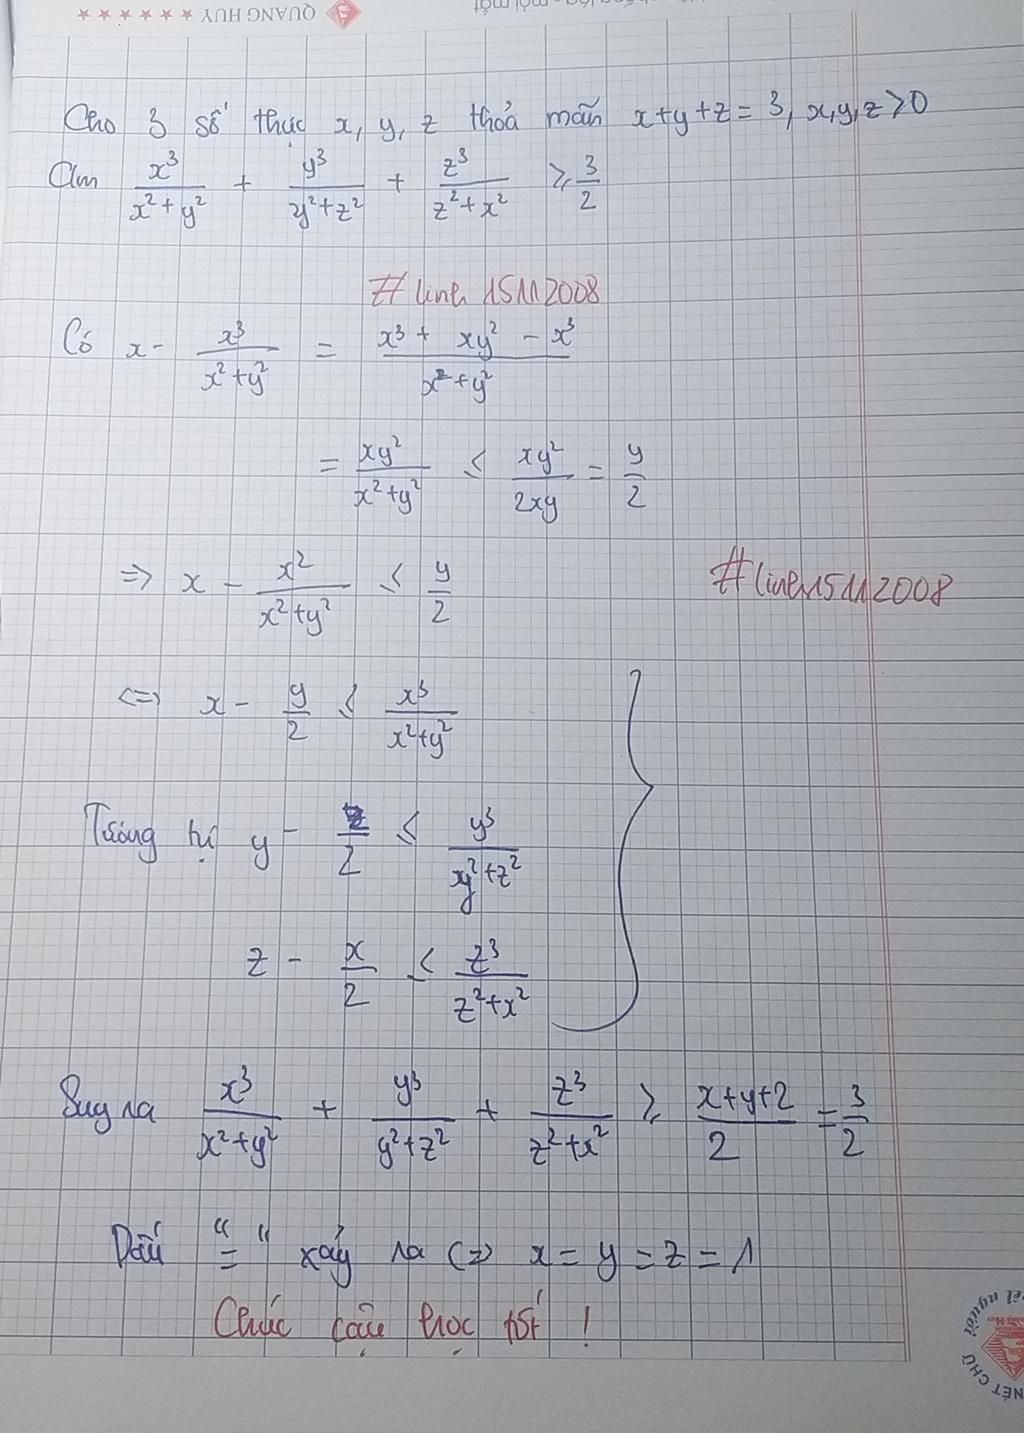 QUANG HUY
Cho 3 số thực x, y, z thoả mãn x+y+z = 3, x,y,z>0
Cm x³/(x²+y²) + y³/(y²+z²) + z³/(z²+x²) ≥ 3/2
#linh15112008
Có x - x³/(x²+y²) = (x³ + xy² - x³)/(x²+y²)
= xy²/(x²+y²) ≤ xy²/2xy = y/2
=> x - x²/(x²+y²) ≤ y/2
#linh15112008
<=> x - y/2 ≤ x³/(x²+y²)
Tương tự y - z/2 ≤ y³/(y²+z²)
z - x/2 ≤ z³/(z²+x²)
Suy ra x³/(x²+y²) + y³/(y²+z²) + z³/(z²+x²) ≥ (x+y+z)/2 = 3/2
Dấu "=" xảy ra <=> x = y = z = 1
Chúc cậu học tốt !
NÉT CHỮ